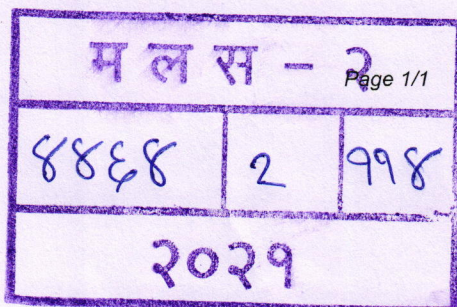 म ल स - २
Page 1/1
४४६४ 2 ११४
२०२१